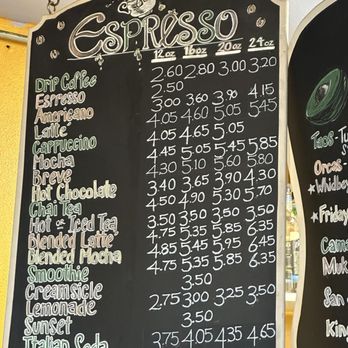 Espresso
12oz 16oz 20oz 24oz
Drip Coffee 2.60 2.80 3.00 3.20
Espresso 2.50
Americano 3.00 3.60 3.90 4.15
Latte 4.05 4.60 5.05 5.45
Cappuccino 4.05 4.65 5.05
Mocha 4.45 5.05 5.45 5.85
Breve 4.30 5.10 5.60 5.80
Hot Chocolate 3.40 3.65 3.90 4.30
Chai Tea 4.50 4.90 5.30 5.70
Hot or Iced Tea 3.50 3.50 3.50 3.50
Blended Latte 4.75 5.35 5.85 6.35
Blended Mocha 4.85 5.45 5.95 6.45
Smoothie 4.75 5.35 5.85 6.35
Creamsicle 3.50
Lemonade 2.75 3.00 3.25 3.50
Sunset 3.50
Italian Soda 3.75 4.05 4.35 4.65
Tacos - Tu
Orcas -
Whidbey
Friday
Cama
Muk
San
King